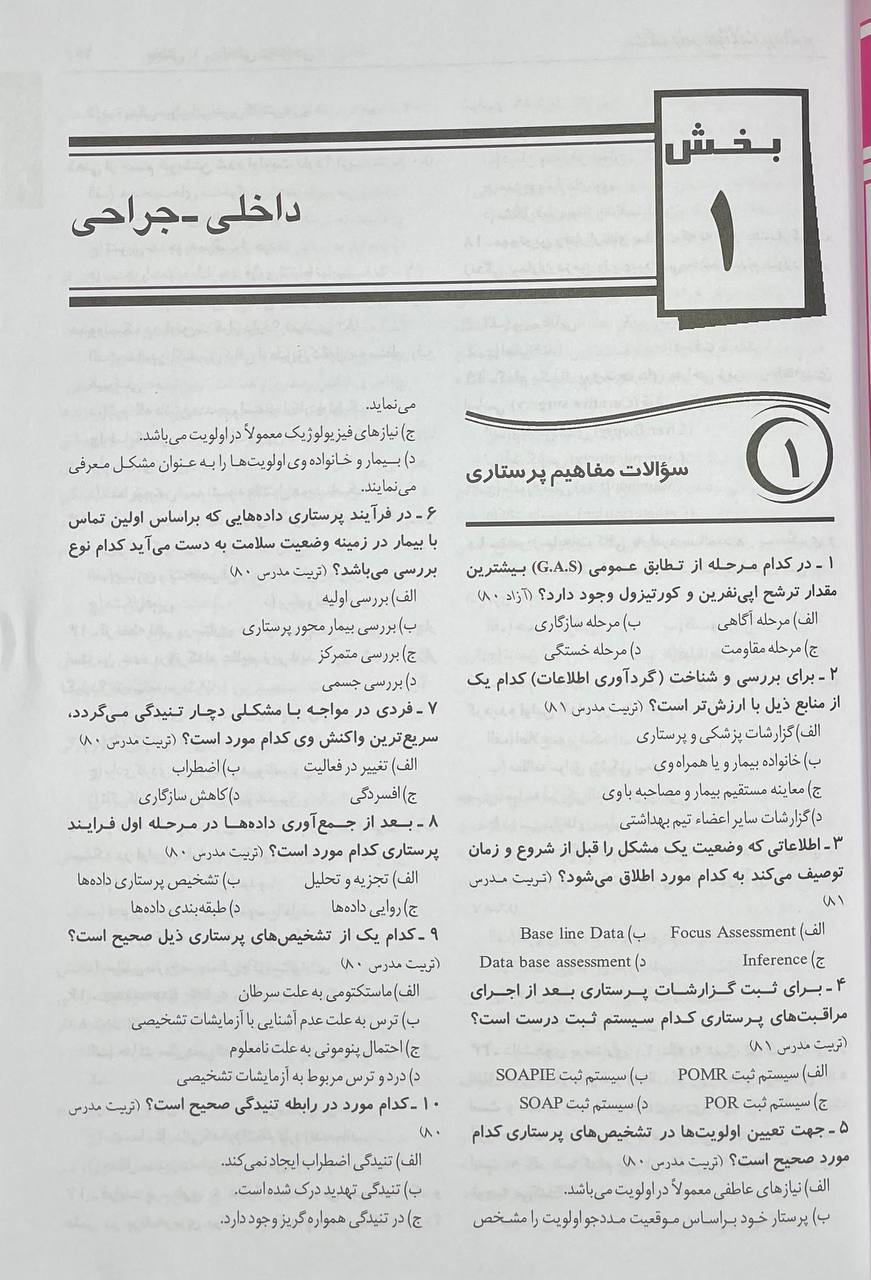 بخش
۱
داخلی - جراحی
۱
سؤالات مفاهیم پرستاری
۱ ـ در کدام مرحله از تطابق عمومی (G.A.S) بیشترین
مقدار ترشح اپی‌نفرین و کورتیزول وجود دارد؟ (آزاد ۸۰)
الف) مرحله آگاهی ب) مرحله سازگاری
ج) مرحله مقاومت د) مرحله خستگی
۲ ـ برای بررسی و شناخت (گردآوری اطلاعات) کدام یک
از منابع ذیل با ارزش‌تر است؟ (تربیت مدرس ۸۱)
الف) گزارشات پزشکی و پرستاری
ب) خانواده بیمار و یا همراه وی
ج) معاینه مستقیم بیمار و مصاحبه با وی
د) گزارشات سایر اعضاء تیم بهداشتی
۳ ـ اطلاعاتی که وضعیت یک مشکل را قبل از شروع و زمان
توصیف می‌کند به کدام مورد اطلاق می‌شود؟ (تربیت مدرس
۸۱)
الف) Focus Assessment ب) Base line Data
ج) Inference د) Data base assessment
۴ ـ برای ثبت گزارشات پرستاری بعد از اجرای
مراقبت‌های پرستاری کدام سیستم ثبت درست است؟
(تربیت مدرس ۸۱)
الف) سیستم ثبت POMR ب) سیستم ثبت SOAPIE
ج) سیستم ثبت POR د) سیستم ثبت SOAP
۵ ـ جهت تعیین اولویت‌ها در تشخیص‌های پرستاری کدام
مورد صحیح است؟ (تربیت مدرس ۸۰)
الف) نیازهای عاطفی معمولاً در اولویت می‌باشد.
ب) پرستار خود براساس موقعیت مددجو اولویت را مشخص
می‌نماید.
ج) نیازهای فیزیولوژیک معمولاً در اولویت می‌باشد.
د) بیمار و خانواده وی اولویت‌ها را به عنوان مشکل معرفی
می‌نمایند.
۶ ـ در فرآیند پرستاری داده‌هایی که براساس اولین تماس
با بیمار در زمینه وضعیت سلامت به دست می‌آید کدام نوع
بررسی می‌باشد؟ (تربیت مدرس ۸۰)
الف) بررسی اولیه
ب) بررسی بیمار محور پرستاری
ج) بررسی متمرکز
د) بررسی جسمی
۷ ـ فردی در مواجه با مشکلی دچار تنیدگی می‌گردد،
سریع‌ترین واکنش وی کدام مورد است؟ (تربیت مدرس ۸۰)
الف) تغییر در فعالیت ب) اضطراب
ج) افسردگی د) کاهش سازگاری
۸ ـ بعد از جمع‌آوری داده‌ها در مرحله اول فرایند
پرستاری کدام مورد است؟ (تربیت مدرس ۸۰)
الف) تجزیه و تحلیل ب) تشخیص پرستاری داده‌ها
ج) روایی داده‌ها د) طبقه‌بندی داده‌ها
۹ ـ کدام یک از تشخیص‌های پرستاری ذیل صحیح است؟
(تربیت مدرس ۸۰)
الف) ماستکتومی به علت سرطان
ب) ترس به علت عدم آشنایی با آزمایشات تشخیصی
ج) احتمال پنومونی به علت نامعلوم
د) درد و ترس مربوط به آزمایشات تشخیصی
۱۰ ـ کدام مورد در رابطه تنیدگی صحیح است؟ (تربیت مدرس
۸۰)
الف) تنیدگی اضطراب ایجاد نمی‌کند.
ب) تنیدگی تهدید درک شده است.
ج) در تنیدگی همواره گریز وجود دارد.